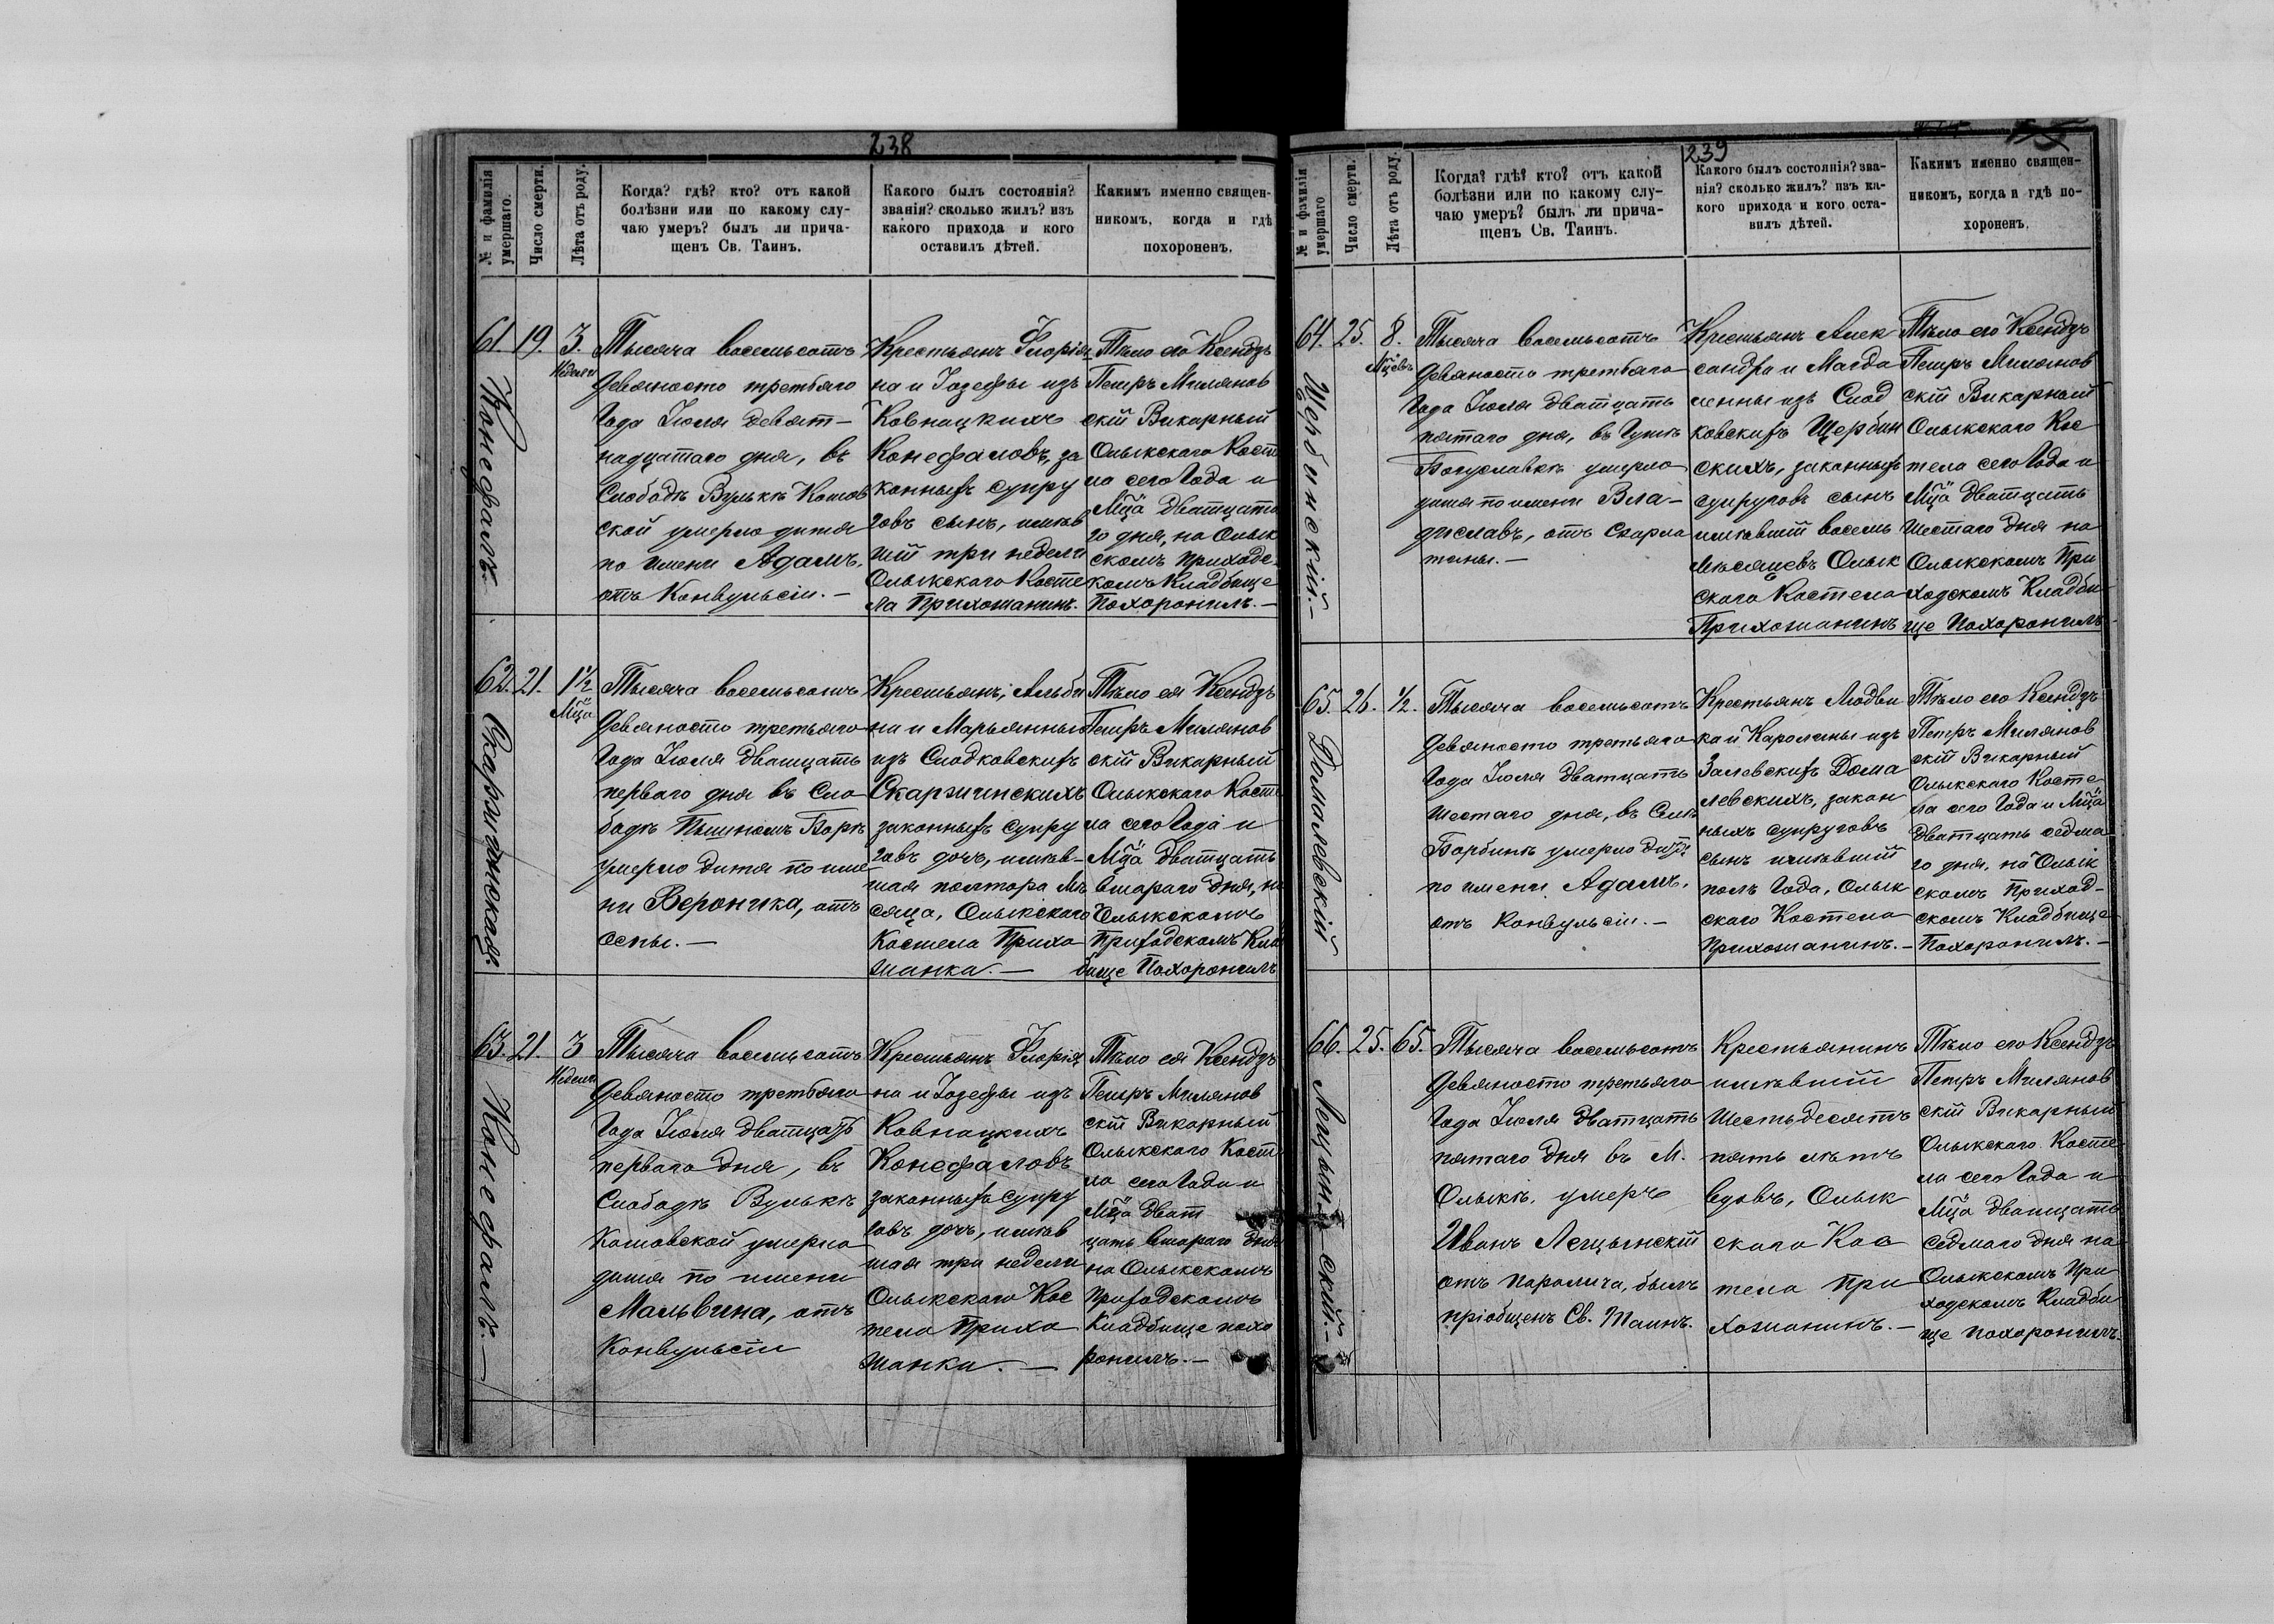 238
№ и фамилія
умершаго.
Число смерти.
Лѣта отъ роду.
Когда? гдѣ? кто? отъ какой
болѣзни или по какому слу-
чаю умеръ? былъ ли прича-
щенъ Св. Таинъ.
Какого былъ состоянія?
званія? сколько жилъ? изъ
какого прихода и кого
оставилъ дѣтей.
Какимъ именно священ-
никомъ, когда и гдѣ
похороненъ.
61.
Конефалъ.
19.
3.
Недели
Тысяча восемьсотъ
девяносто третьяго
Года Іюля девят-
надцатаго дня, въ
Слободѣ Вулькѣ Котов
ской умерло дитя
по имени Адамъ,
отъ Конвульсіи.-
Крестьянъ Флорія
на и Іозефы изъ
Ковнацкихъ
Конефаловъ, за
конныхъ супру
говъ сынъ, имѣв
шій три недели
Олыкскаго Косте
ла Прихожанинъ.
Тѣло его Ксендзъ
Петръ Милянов
скій Викарный
Олыкскаго Косте
ла сего Года и
Мца двадцата
го дня, на Олык
скомъ приходс
комъ Кладбище
Похоронилъ.-
62.
Скаржинская.
21.
1½
Мца
Тысяча восемьсотъ
девяносто третьяго
Года Іюля дватцать
перваго дня въ Сло
бодѣ Пышномъ Боркѣ
умерло дитя по име
ни Вероника, отъ
оспы.-
Крестьянъ, Альби
на и Марьянны
изъ Слодковскихъ
Скаржинскихъ
законныхъ супру
говъ дочь, имѣв-
шая полтора Мѣ
сяца, Олыкскаго
Костела Прихо
жанка.-
Тѣло ея Ксендзъ
Петръ Милянов
скій Викарный
Олыкскаго Косте
ла сего Года и
Мца двадцать
втораго дня, на
Олыкскомъ
Приходскомъ Клад
бище Похоронилъ
63.
Конефалъ.-
21.
3
Недели
Тысяча восемьсотъ
девяносто третьяго
Года Іюля двадцать
перваго дня, въ
Слободѣ Вулькѣ
Котовской умерло
дитя по имени
Мальвина, отъ
Конвульсіи
Крестьянъ Флорія
на и Іозефы изъ
Ковнацкихъ
Конефаловъ
законныхъ супру
говъ дочь, имѣв
шая три недели
Олыкскаго Кос
тела Прихо
жанка.-
Тѣло ея Ксендзъ
Петръ Милянов
скій Викарный
Олыкскаго Косте
ла сего Года и
Мца Дват
цать втораго дня
на Олыкскомъ
Приходскомъ
Кладбище похо
ронилъ.-
239
№ и фамилія
умершаго
Число смерти.
Лѣта отъ роду.
Когда? гдѣ? кто? отъ какой
болѣзни или по какому слу-
чаю умеръ? былъ ли прича-
щенъ Св. Таинъ.
Какого былъ состоянія? зва-
нія? сколько жилъ? изъ ка-
кого прихода и кого оста-
вилъ дѣтей.
Какимъ именно священ-
никомъ, когда и гдѣ по-
хороненъ.
64.
Щербинскій.-
25.
8.
Мцевъ
Тысяча восемьсотъ
девяносто третьяго
Года Іюля двадцать
пятаго дня, въ
Богуславкѣ умерло
дитя по имени Вла-
диславъ, отъ Скарла
тины.-
Крестьянъ Алек
сандра и Магда
лены изъ Слод
ковскихъ Щербин
скихъ, законныхъ
супруговъ сынъ
имѣвшій восемь
мѣсяцевъ Олык
скаго Костела
Прихожанинъ
Тѣло его Ксендзъ
Петръ Милянов
скій Викарный
Олыкскаго Кос
тела сего Года и
Мца двадцать
Шестаго дня на
Олыкскомъ При
ходскомъ Кладби
ще Похоронилъ.
65.
Домалевскій
26.
½.
Тысяча восемьсотъ
девяносто третьяго
Года Іюля двадцать
шестаго дня, въ Селѣ
Борбинѣ умерло дитя
по имени Адамъ,
отъ Конвульсіи.-
Крестьянъ Людви
ка и Каролины изъ
Залевскихъ Дома
левскихъ, закон
ныхъ супруговъ
сынъ имѣвшій
полъ Года, Олык
скаго Костела
Прихожанинъ.-
Тѣло его Ксендзъ
Петръ Милянов
скій Викарный
Олыкскаго Косте
ла сего Года и Мца
двадцать седма
го дня, на Олык
скомъ Приход-
скомъ Кладбище
Похоронилъ.-
66.
Лещынскій.-
25.
65.
Тысяча восемьсотъ
девяносто третьяго
Года Іюля двадцать
пятаго дня въ М.
Олыкѣ умеръ
Иванъ Лещынскій
отъ паралича, былъ
пріобщенъ Св. Таинъ.
Крестьянинъ
имѣвшій
Шестьдесятъ
пять лѣтъ
вдовъ, Олык
скаго Кос
тела При
хожанинъ.-
Тѣло его Ксендзъ
Петръ Милянов
скій Викарный
Олыкскаго Косте
ла сего Года и
Мца двадцать
седмаго дня на
Олыкскомъ При
ходскомъ Кладби
ще похоронилъ.